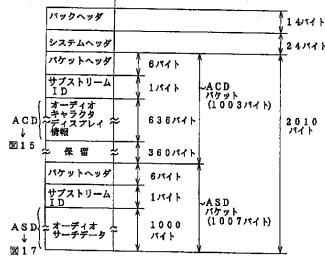 パックヘッダ
14バイト
システムヘッダ
24バイト
パケットヘッダ
6バイト
サブストリーム
ID
1バイト
ACD
↓
図15
オーディオ
キャラクタ
ディスプレイ
情報
636バイト
ACD
パケット
(1003バイト)
2010
バイト
保留
360バイト
パケットヘッダ
6バイト
サブストリーム
ID
1バイト
ASD
↓
図17
オーディオ
サーチデータ
1000
バイト
ASD
パケット
(1007バイト)